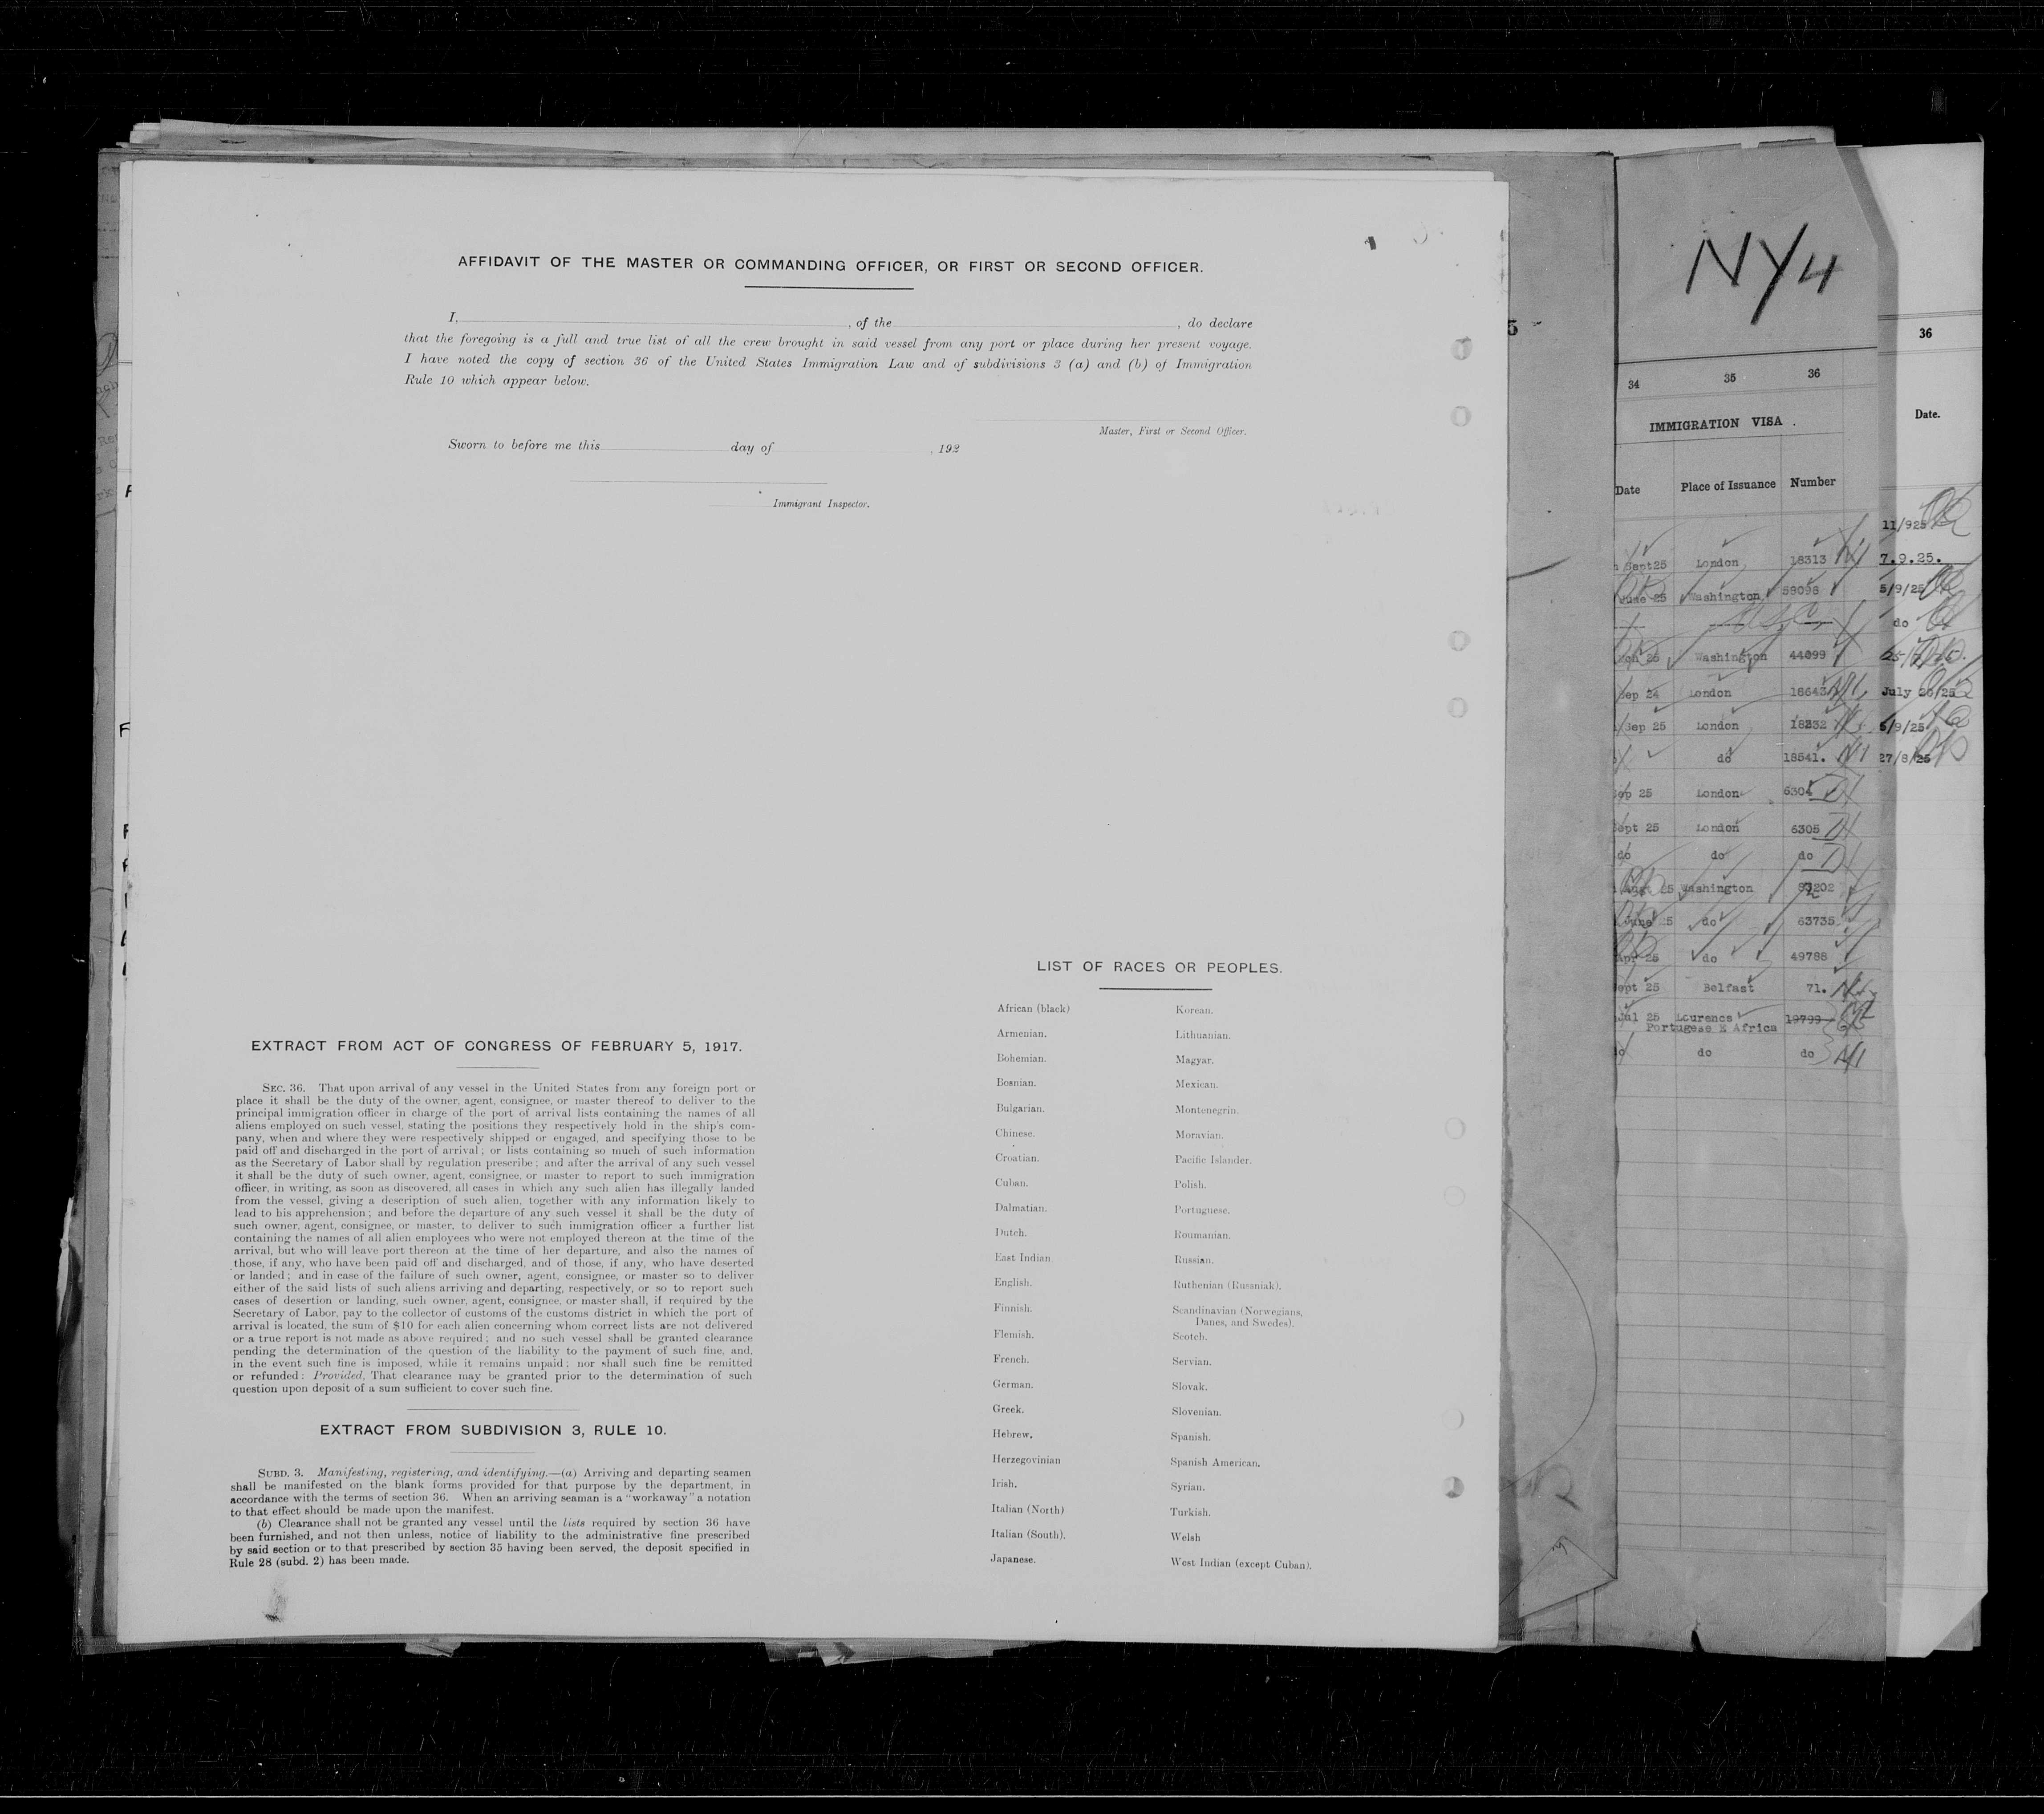 AFFIDAVIT OF THE MASTER OR COMMANDING OFFICER, OR FIRST OR SECOND OFFICER.
I, , of the , do declare
that the foregoing is a full and true list of all the crew brought in said vessel from any port or place during her present voyage.
I have noted the copy of section 36 of the United States Immigration Law and of subdivisions 3 (a) and (b) of Immigration
Rule 10 which appear below.
Master, First or Second Officer.
Sworn to before me this day of , 192
Immigrant Inspector.
EXTRACT FROM ACT OF CONGRESS OF FEBRUARY 5, 1917.
SEC. 36. That upon arrival of any vessel in the United States from any foreign port or
place it shall be the duty of the owner, agent, consignee, or master thereof to deliver to the
principal immigration officer in charge of the port of arrival lists containing the names of all
aliens employed on such vessel, stating the positions they respectively hold in the ship's com-
pany, when and where they were respectively shipped or engaged, and specifying those to be
paid off and discharged in the port of arrival; or lists containing so much of such information
as the Secretary of Labor shall by regulation prescribe; and after the arrival of any such vessel
it shall be the duty of such owner, agent, consignee, or master to report to such immigration
officer, in writing, as soon as discovered, all cases in which any such alien has illegally landed
from the vessel, giving a description of such alien, together with any information likely to
lead to his apprehension; and before the departure of any such vessel it shall be the duty of
such owner, agent, consignee, or master, to deliver to such immigration officer a further list
containing the names of all alien employees who were not employed thereon at the time of the
arrival, but who will leave port thereon at the time of her departure, and also the names of
those, if any, who have been paid off and discharged, and of those, if any, who have deserted
or landed; and in case of the failure of such owner, agent, consignee, or master so to deliver
either of the said lists of such aliens arriving and departing, respectively, or so to report such
cases of desertion or landing, such owner, agent, consignee, or master shall, if required by the
Secretary of Labor, pay to the collector of customs of the customs district in which the port of
arrival is located, the sum of $10 for each alien concerning whom correct lists are not delivered
or a true report is not made as above required; and no such vessel shall be granted clearance
pending the determination of the question of the liability to the payment of such fine, and,
in the event such fine is imposed, while it remains unpaid; nor shall such fine be remitted
or refunded: Provided, That clearance may be granted prior to the determination of such
question upon deposit of a sum sufficient to cover such fine.
EXTRACT FROM SUBDIVISION 3, RULE 10.
SUBD. 3. Manifesting, registering, and identifying.—(a) Arriving and departing seamen
shall be manifested on the blank forms provided for that purpose by the department, in
accordance with the terms of section 36. When an arriving seaman is a "workaway" a notation
to that effect should be made upon the manifest.
(b) Clearance shall not be granted any vessel until the lists required by section 36 have
been furnished, and not then unless, notice of liability to the administrative fine prescribed
by said section or to that prescribed by section 35 having been served, the deposit specified in
Rule 28 (subd. 2) has been made.
LIST OF RACES OR PEOPLES.
African (black)
Armenian.
Bohemian.
Bosnian.
Bulgarian.
Chinese.
Croatian.
Cuban.
Dalmatian.
Dutch.
East Indian.
English.
Finnish.
Flemish.
French.
German.
Greek.
Hebrew.
Herzegovinian
Irish.
Italian (North)
Italian (South).
Japanese.
Korean.
Lithuanian.
Magyar.
Mexican.
Montenegrin.
Moravian.
Pacific Islander.
Polish.
Portuguese.
Roumanian.
Russian.
Ruthenian (Russniak).
Scandinavian (Norwegians,
Danes, and Swedes).
Scotch.
Servian.
Slovak.
Slovenian.
Spanish.
Spanish American.
Syrian.
Turkish.
Welsh
West Indian (except Cuban).
NY4
34 35 36
IMMIGRATION VISA
Date Place of Issuance Number
Sept25 London 18313
June 25 Washington 58098
25 Washington 44099
Sep 24 London 18643
Sep 25 London 18232
do 18541.
Sep 25 London 6304
Sept 25 London 6305
do do do
Augt 25 Washington
June 25 do 63735
Apr 25 do 49788
Sept 25 Belfast 71.
Jul 25 Lourence 19799
Portugese E Africa
do do do
36
Date.
11/925
7.9.25.
5/9/25
do
July 26/25
5/9/25
27/8/25